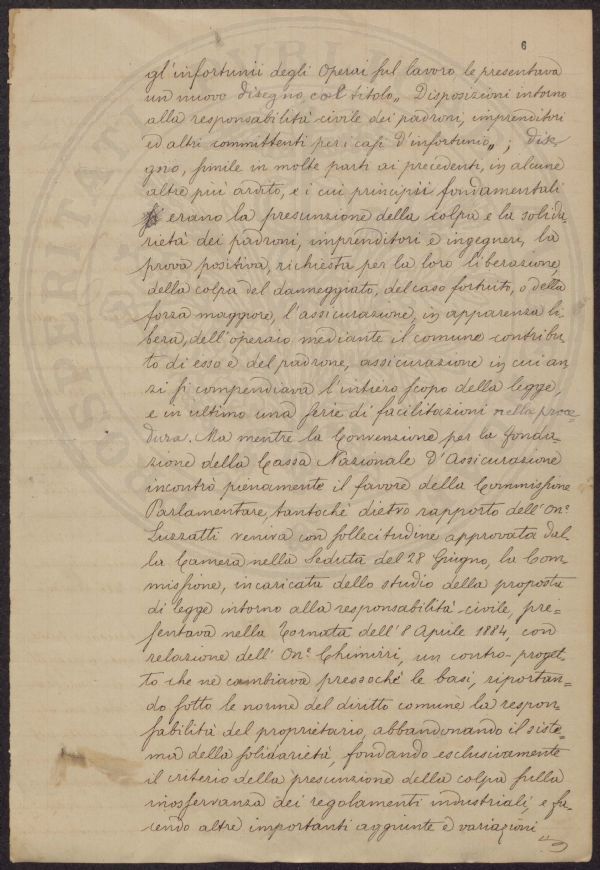 6
gl'infortunii degli Operai sul lavoro, le presentava
un nuovo disegno, col titolo „ Disposizioni intorno
alla responsabilità civile dei padroni, imprenditori
ed altri committenti per i casi d'infortunio„ ; dise-
gno, simile in molte parti ai precedenti, in alcune
altre più ardito, e i cui principii fondamentali
erano la presunzione della colpa e la solida-
rietà dei padroni, imprenditori e ingegneri, la
prova positiva, richiesta per la loro liberazione,
della colpa del danneggiato, del caso fortuito, o della
forza maggiore, l'assicurazione, in apparenza li-
bera, dell'operaio mediante il comune contribu-
to di esso e del padrone, assicurazione in cui an-
zi si compendiava l'intiero scopo della legge,
e in ultimo una serie di facilitazioni nella proce-
dura. Ma mentre la Convenzione per la fonda-
zione della Cassa Nazionale d'Assicurazione
incontrò pienamente il favore della Commissione
Parlamentare, tantochè dietro rapporto dell'On.e
Luzzatti veniva con sollecitudine approvata dal-
la Camera nella Seduta del 28 Giugno, la Com-
missione, incaricata dello studio della proposta
di legge intorno alla responsabilità civile, pre=
sentava nella Tornata dell'8 Aprile 1884, con
relazione dell'On.e Chimirri, un contro-proget-
to che ne cambiava pressochè le basi, riportan=
do sotto le norme del diritto comune la respon-
sabilità del proprietario, abbandonando il siste=
ma della solidarietà, fondando esclusivamente
il criterio della presunzione della colpa sulla
inosservanza dei regolamenti industriali, e fa-
cendo altre importanti aggiunte e variazioni